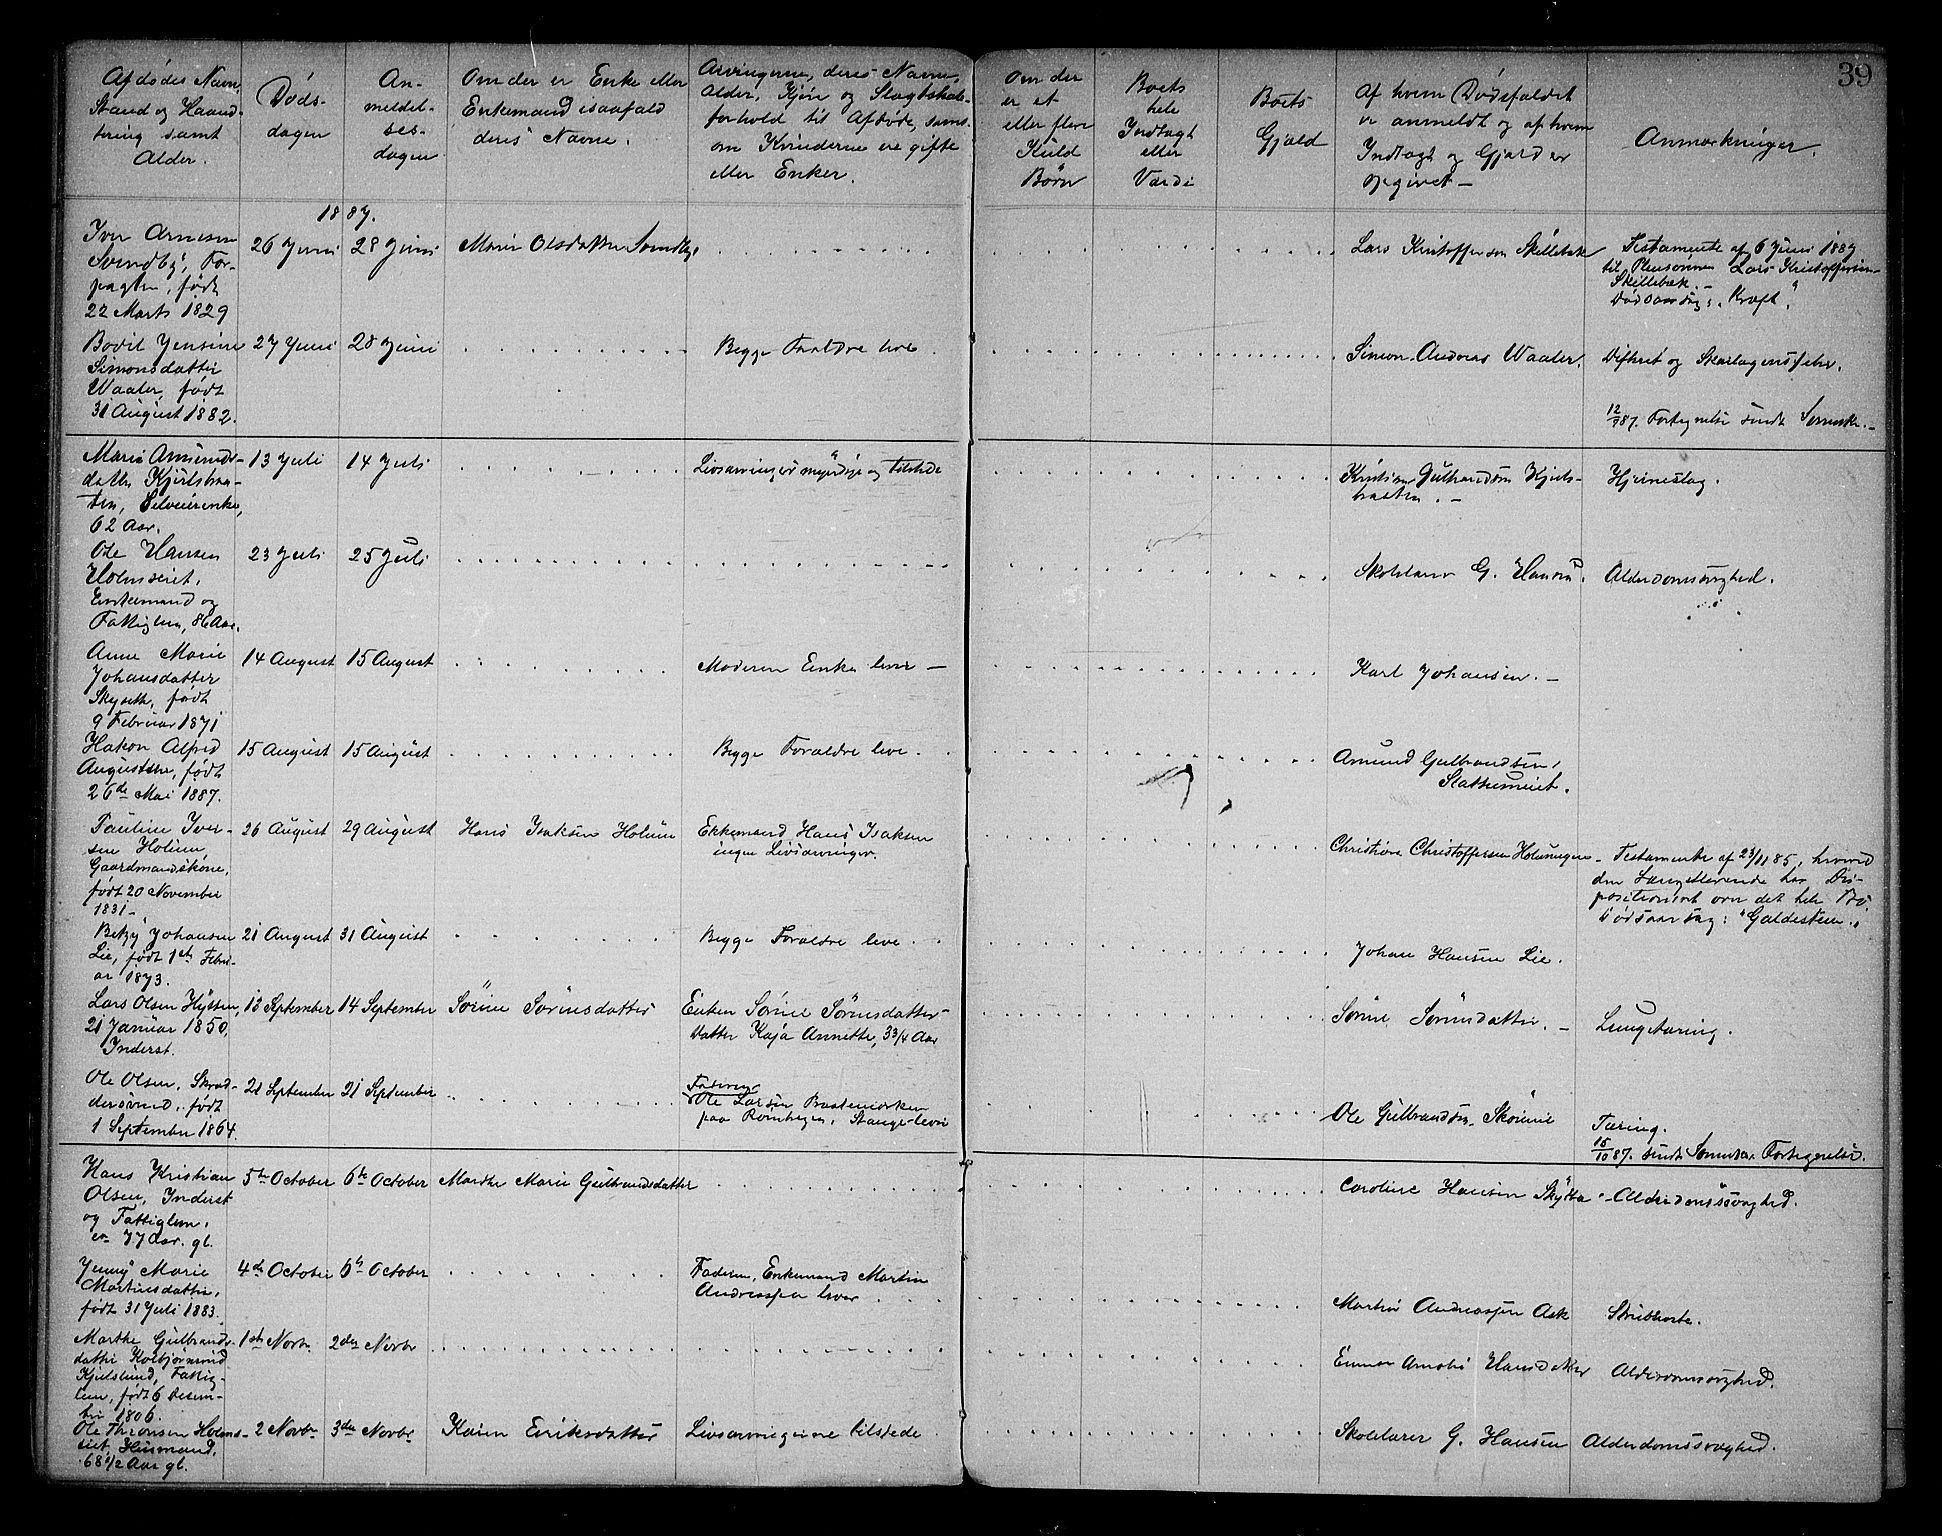 39
Afdødes Navn,
Stand og Haand-
tering samt
Alder.
Døds-
dagen
An-
meldel-
ses-
dagen
Om der er Enke eller
Enkemand isaafald
deres Navne.
Arvingerne, deres Navne,
Alder, Kjøn og Slagtskabs-
forhold til Afdøde, sam-
om Kvinderne ere gifte
eller Enker.
Om der
er et
eller flere
Kuld
Børn
Boets
hele
Indtægt
eller
Værdi
Boets
Gjæld
Af hvem Dødsfaldet
er anmeldt og af hvem
Indtægt og Gjæld er
opgivet —
Anmærkninger.
1887.
Iver Arnesen
Svendby, For-
pagter, født
22 Marts 1829
26 Juni
28 Juni
Maria Olsdatter Svendby,
Lars Kristoffersen Skillebæk
Testamente af 6 Juni 1887
til Pleiesønnen Lars Kristoffersen
Skillebæk. —
Dødsansag: "Kræft".
Bodil Jensine
Simonsdatter
Waaler, født
31 August 1882.
27 Juni
28 Juni
Begge Forældre leve
Simon Andreas Waaler.
Difterit og Skarlagensfeber.
12/7 87. Fortegnelse sendt Sorensk. —
Marie Amunds-
datter Kjirlshaa-
ten, Selveierenke,
62 Aar.
13 Juli
14 Juli
Livsarvinger myndige og tilstede
Kristian Gulbrandsen
Hjerneslag.
Ole Hansen
Holmseiet,
Enkemand og
Fattiglem, 86 Aar.
23 Juli
25 Juli
Skolelærer G. Hansen.
Alderdomssvaghed.
Anne Marie
Johansdatter
Skyseth, født
9 Februar 1871
14 August
15 August
Moderen Enke lever —
Karl Johansen. —
Hakon Alfred
Augustsen, født
26de Mai 1887.
15 August
15 August
Begge Forældre leve.
Amund Gulbrandsen,
Slattumeiet.
Pauline Iver-
sen Holum
Gaardmandskone,
født 20 November
1831 —
26 August
29 August
Hans Isaksen Holum
Enkemand Hans Isaksen
ingen Livsarvinger.
Christian Christoffersen Holumeien
Testamente af 23/11 85, hvorved
den Længstlevende har Dis-
positionsret over det hele Bo,
Dødsaarsag: "Galdesteen".
Betzy Johansen
Lie, født 1ste Febru-
ar 1873.
21 August
31 August
Begge Forældre leve.
Johan Hansen Lie.
Lars Olsen Hytten,
21 Januar 1850,
Inderst.
12 September
14 September
Sørine Sørensdatter
Enken Sørine Sørensdatter
Datter Kaja Annette, 3 3/4 Aar
Sørine Sørensdatter. —
Lungetæring.
Ole Olsen, Skræd-
dersvend, født
1 September 1864.
21 September
21 September
Faderen
Ole Larsen
paa Stange lever
Ole Gulbrandsen
Tæring.
15/10 87. sendt Sorensk. Fortegnelse.
Hans Kristian
Olsen, Inderst
og Fattiglem,
77 Aar. gl.
5te October
6te October
Marthe Marie Gulbrandsdatter
Caroline Hansen Skytta
Alderdomssvaghed.
Jenny Marie
Martinsdatter,
født 31 Juli 1883.
4de October
6te October
Faderen, Enkemand Martin
Andreassen lever
Martin Andreassen Ask
Strubhoste.
Marthe Gulbrands-
datter Kolbjørnsrud
Kjelslund, Fattig-
lem, født 6 Decem-
ber 1806.
1ste Novbr
2den Novbr
Alderdomssvaghed.
Ole Thronsen Holms-
eiet, Husmand,
68 1/2 Aar gl.
2 Novbr
3die Novbr
Karen Eriksdatter
Livsarvingerne tilstede
Skolelærer G. Hansen
Alderdomssvaghed.